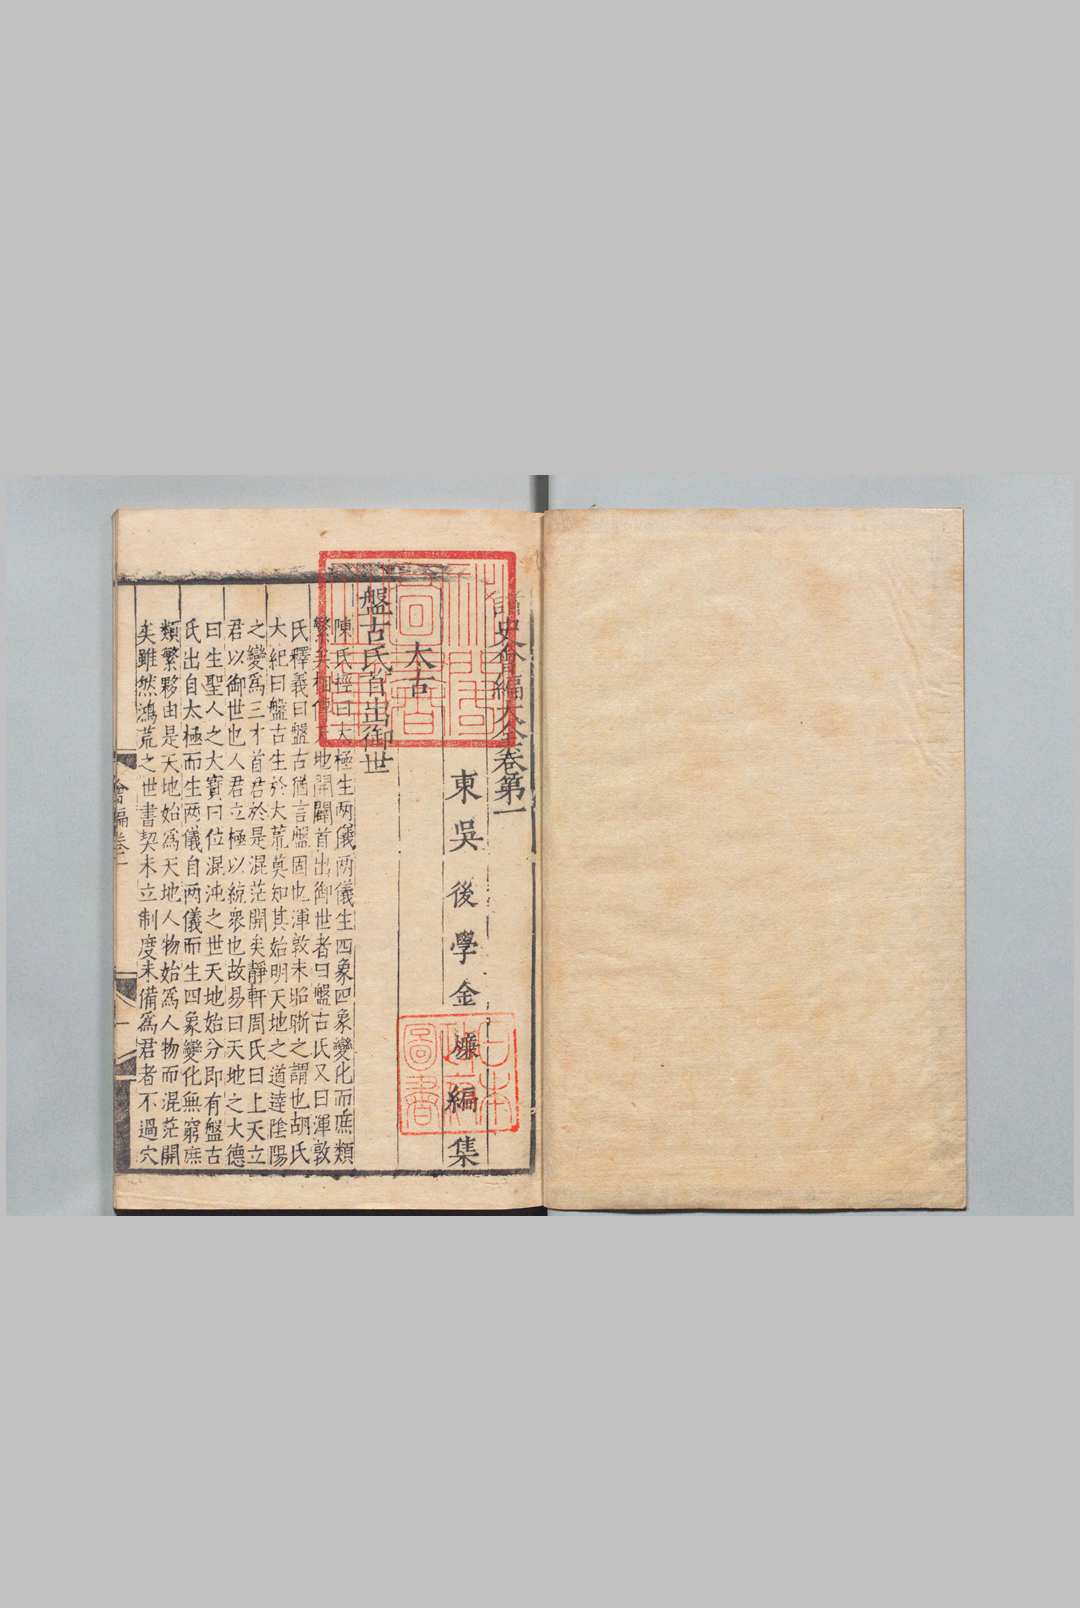 諸史會編大全卷第一
東吳後學金燫編集
太古
盤古氏首出御世
陳氏桱曰太極生兩儀兩儀生四象四象變化而庶類
繁矣相傳 地開闢首出御世者曰盤古氏又曰渾敦
氏釋義曰盤古猶言盤固也渾敦未昭晣之謂也胡氏
大紀曰盤古生於大荒莫知其始明天地之道達陰陽
之變爲三才首君於是混茫開矣靜軒周氏曰上天立
君以御世也人君立極以統衆也故易曰天地之大德
曰生聖人之大寶曰位混沌之世天地始分即有盤古
氏出自太極而生两儀自两儀而生四象變化無窮庶
類繁夥由是天地始爲天地人物始爲人物而混茫開
矣雖然鴻荒之世書契未立制度未備爲君者不過穴
會編卷一
一
日本
政府
圖書